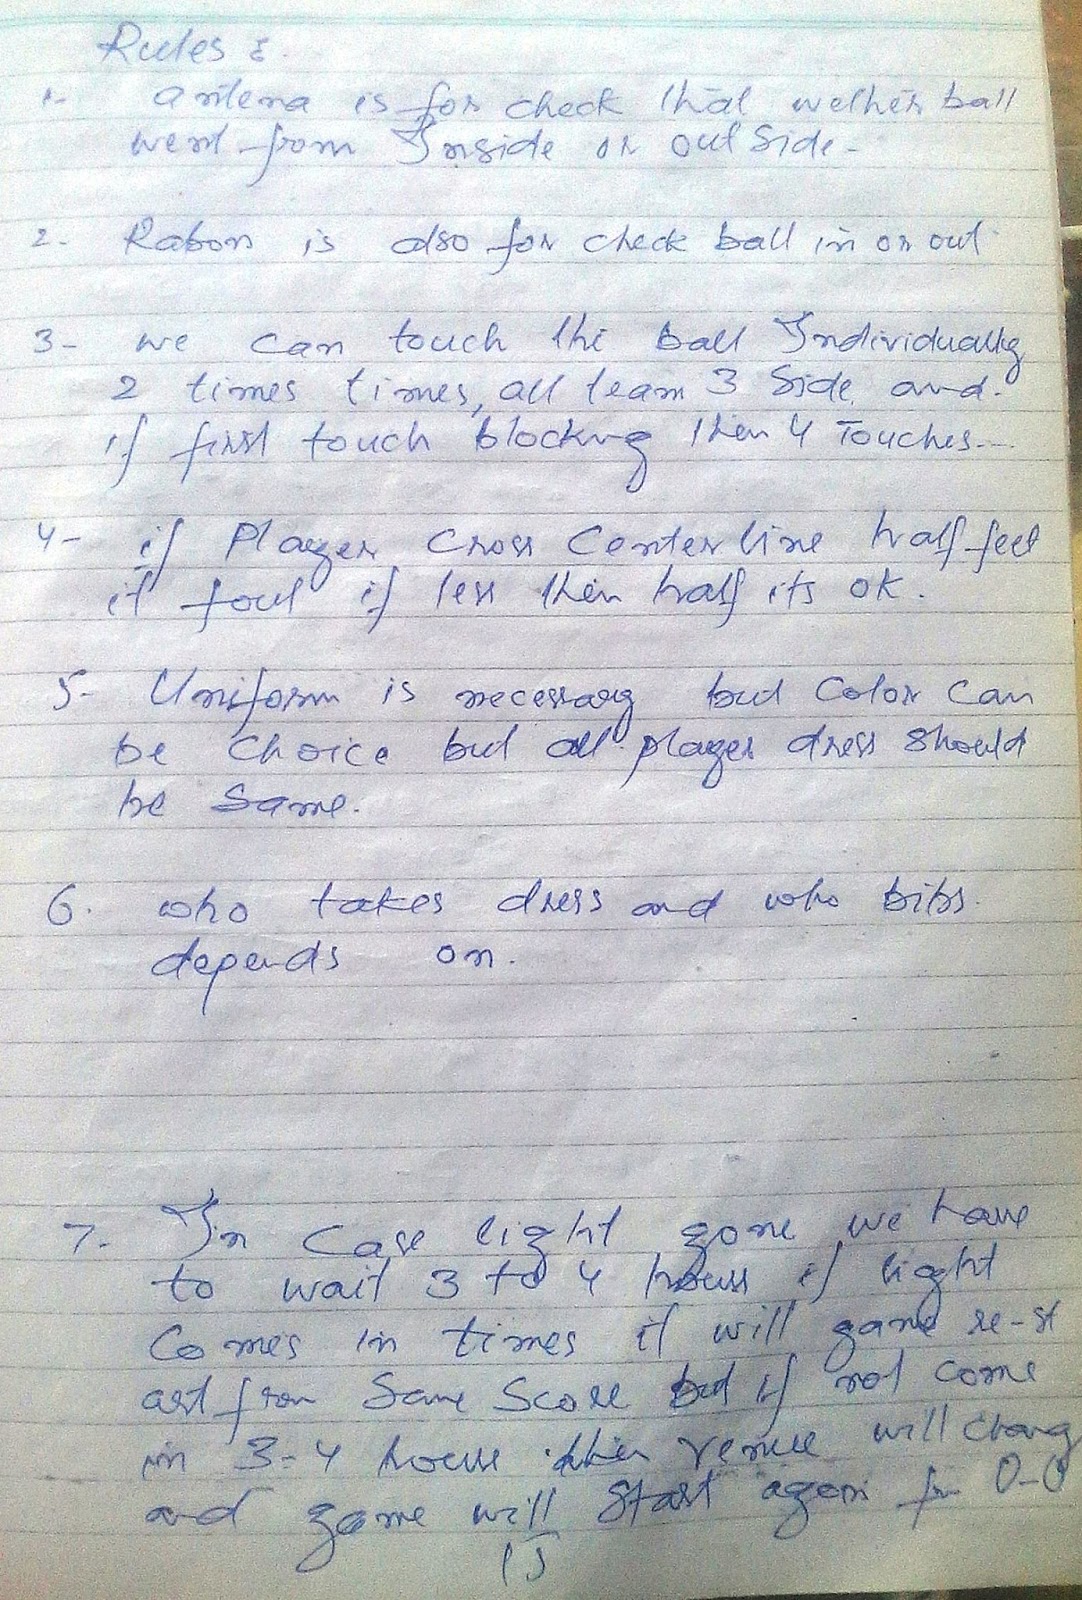 Rules :
1- antena is for check that wether ball
went from Inside or out Side-
2- Rabon is also for check ball in or out
3- we can touch the ball Individually
2 times times, all team 3 Side and
if first touch blocking then 4 Touches---
4- if Player Cross Center line half feet
it foul if less then half its ok.
5- Uniform is necessary but Color Can
be Choice but all player dress should
be Same.
6. who takes dress and who bibs
depends on.
7- In Case light gone we have
to wait 3 to 4 hours if light
Comes in times it will game re-st
art from Same Score but if not come
in 3-4 hours then venue will chang
and game will start again for 0-0
15